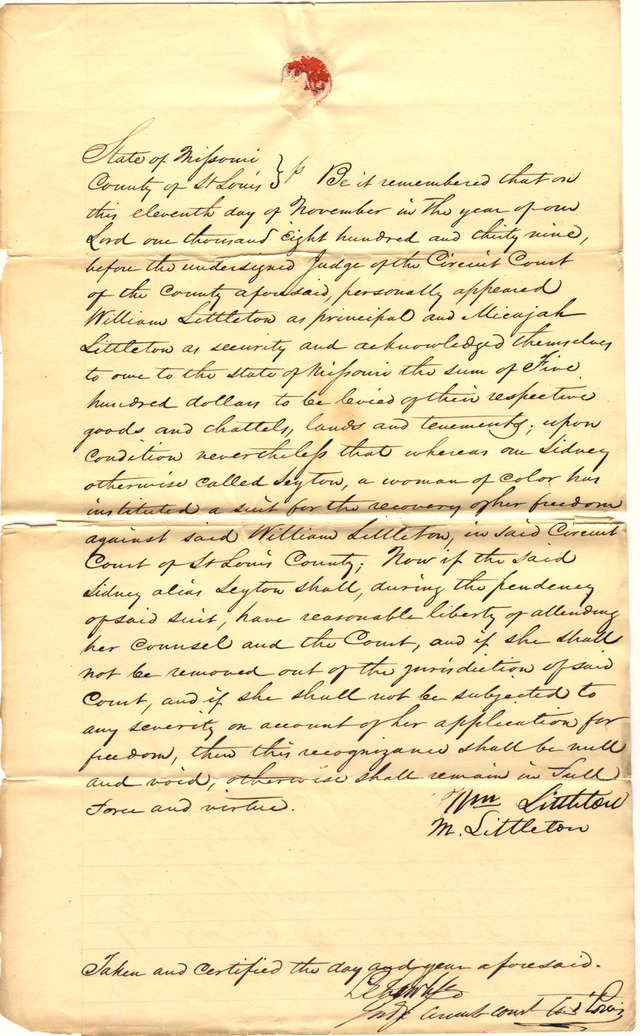 State of Missouri
County of St Louis } ss Be it remembered that on
this eleventh day of November in the year of our
Lord one thousand Eight hundred and thirty nine,
before the undersigned Judge of the Circuit Court
of the County aforesaid, personally appeared
William Littleton as principal and Micajah
Littleton as security and acknowledged themselves
to owe to the state of Missouri the sum of Five
hundred dollars to be levied of their respective
goods and chattels, lands and tenements; upon
condition nevertheless that whereas one Sidney
otherwise called Seyton, a woman of color has
instituted a suit for the recovery of her freedom
against said William Littleton, in said Circuit
Court of St Louis County; Now if the said
Sidney alias Seyton shall, during the pendency
of said suit, have reasonable liberty of attending
her counsel and the Court, and if she shall
not be removed out of the jurisdiction of said
Court, and if she shall not be subjected to
any severity on account of her application for
freedom, then this recognizance shall be null
and void, otherwise shall remain in Full
Force and virtue.
Wm Littleton
M. Littleton
Taken and certified the day and year aforesaid.
Judge Circuit Court